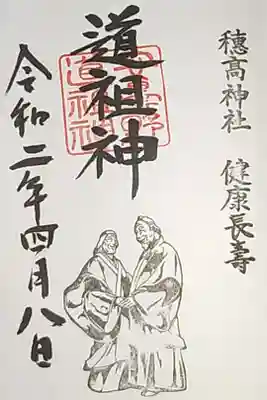 穂高神社 健康長壽
道祖神
令和二年四月八日